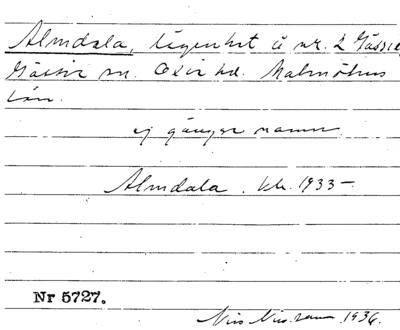 Almdala, lägenhet å nr. 2 Gässie
Gässie sn. Oxie hd. Malmöhus
län.
ej gängse namn
Almdala. kbr. 1933–
Nr 5727.
Nils Nilsson 1936.